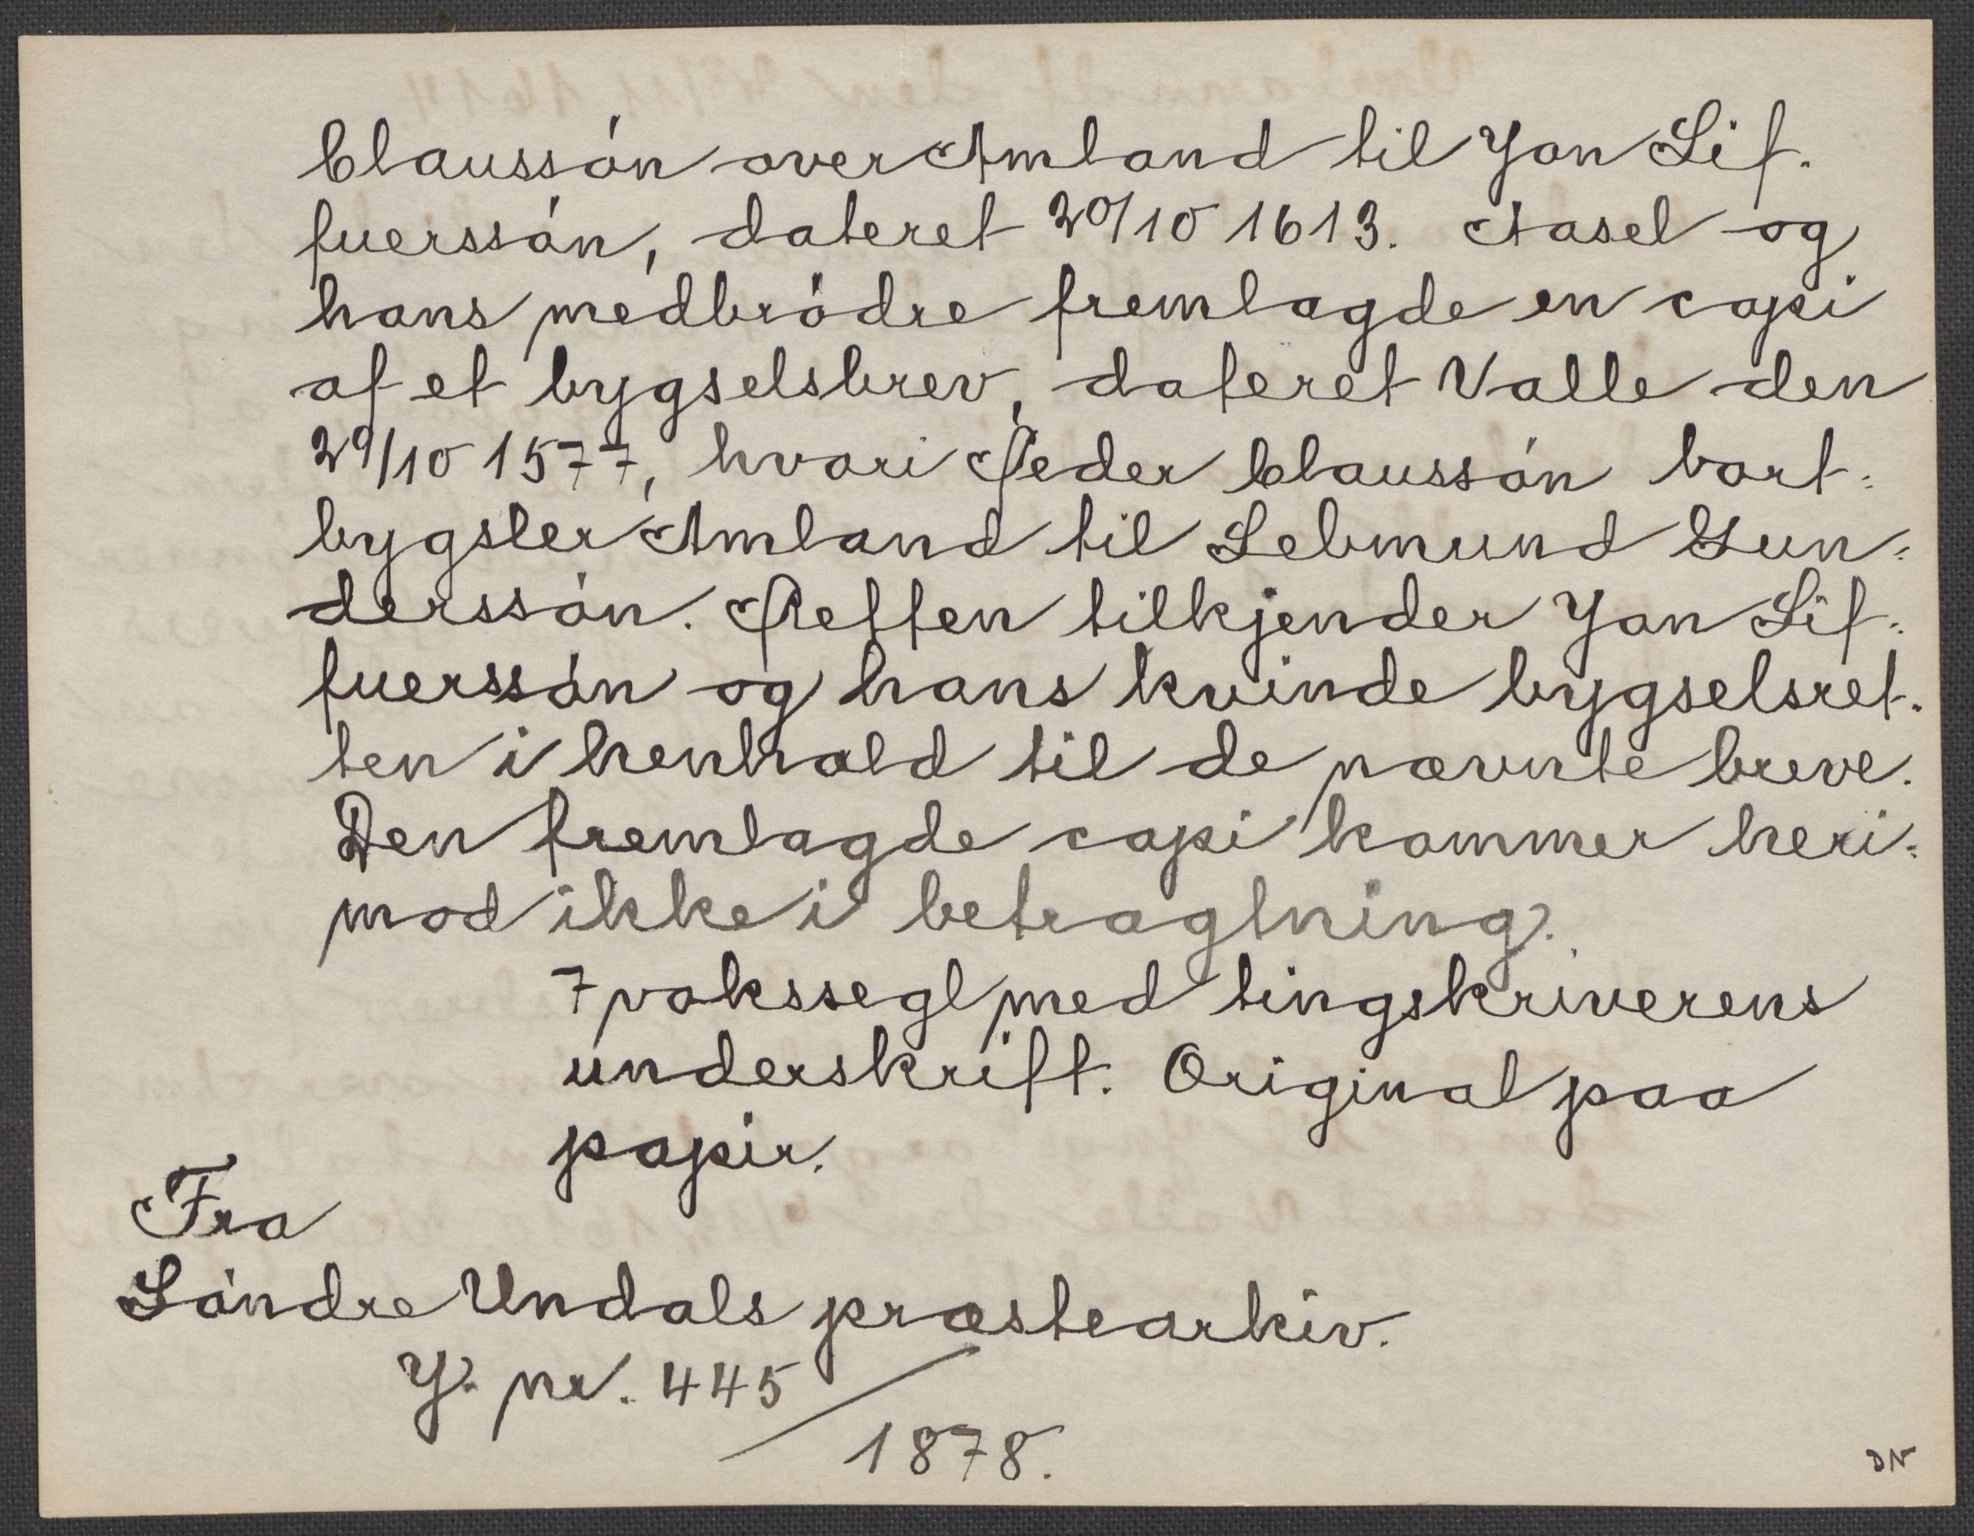 Claussón over Amland til Jon Sif-
fuerssón, dateret 20/10 1613. Aasel og
hans medbródre fremlagde en copi
af et bygselsbrev, dateret Valle den
29/10 1577, hvori Peder Claussón bort-
bygsler Amland til Lebmund Gun-
derssón. Retten tilkjender Jon Sif-
fuerssón og hans kvinde bygselsret-
ten i henhold til de nævnte breve.
Den fremlagde copi kommer heri-
mod ikke i betragtning.
7 vokssegl med tingskriverens
underskrift. Original paa
papir.
Fra
Sóndre Undals præstearkiv.
J. nr. 445/1878.
DN